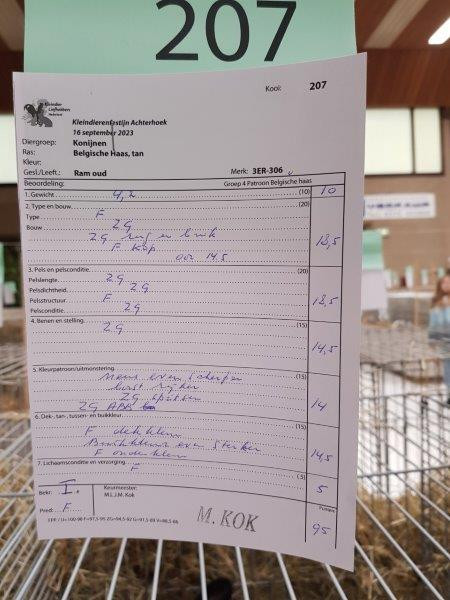 207
Kooi: 207
Kleindier Liefhebbers
Kleindierenfestijn Achterhoek
16 september 2023
Diergroep: Konijnen
Ras: Belgische Haas, tan
Kleur:
Gesl./Leeft.: Ram oud Merk: 3ER-306
Beoordeling: Groep 4 Patroon Belgische haas
1. Gewicht 4,2 (10) 10
2. Type en bouw (20)
Type F
Bouw ZG
ZG rug en buik 18,5
F kop
oor 14.5
3. Pels en pelsconditie. (20)
Pelslengte ZG
Pelsdichtheid. ZG 18,5
Pelsstructuur. F
Pelsconditie. ZG
4. Benen en stelling. (15)
ZG 14,5
5. Kleurpatroon/uitmonstering. (15)
even scherper
borst
ZG 14
ZG
6. Dek-, tan-, tussen- en buikkleur. (15)
F dekkleur
Buikkleur even sterker 14,5
F onderkleur
7. Lichaamsconditie en verzorging. (5)
F 5
Bekr: I Keurmeester: Punten
M.L.J.M. Kok
Pred: F M. KOK 95